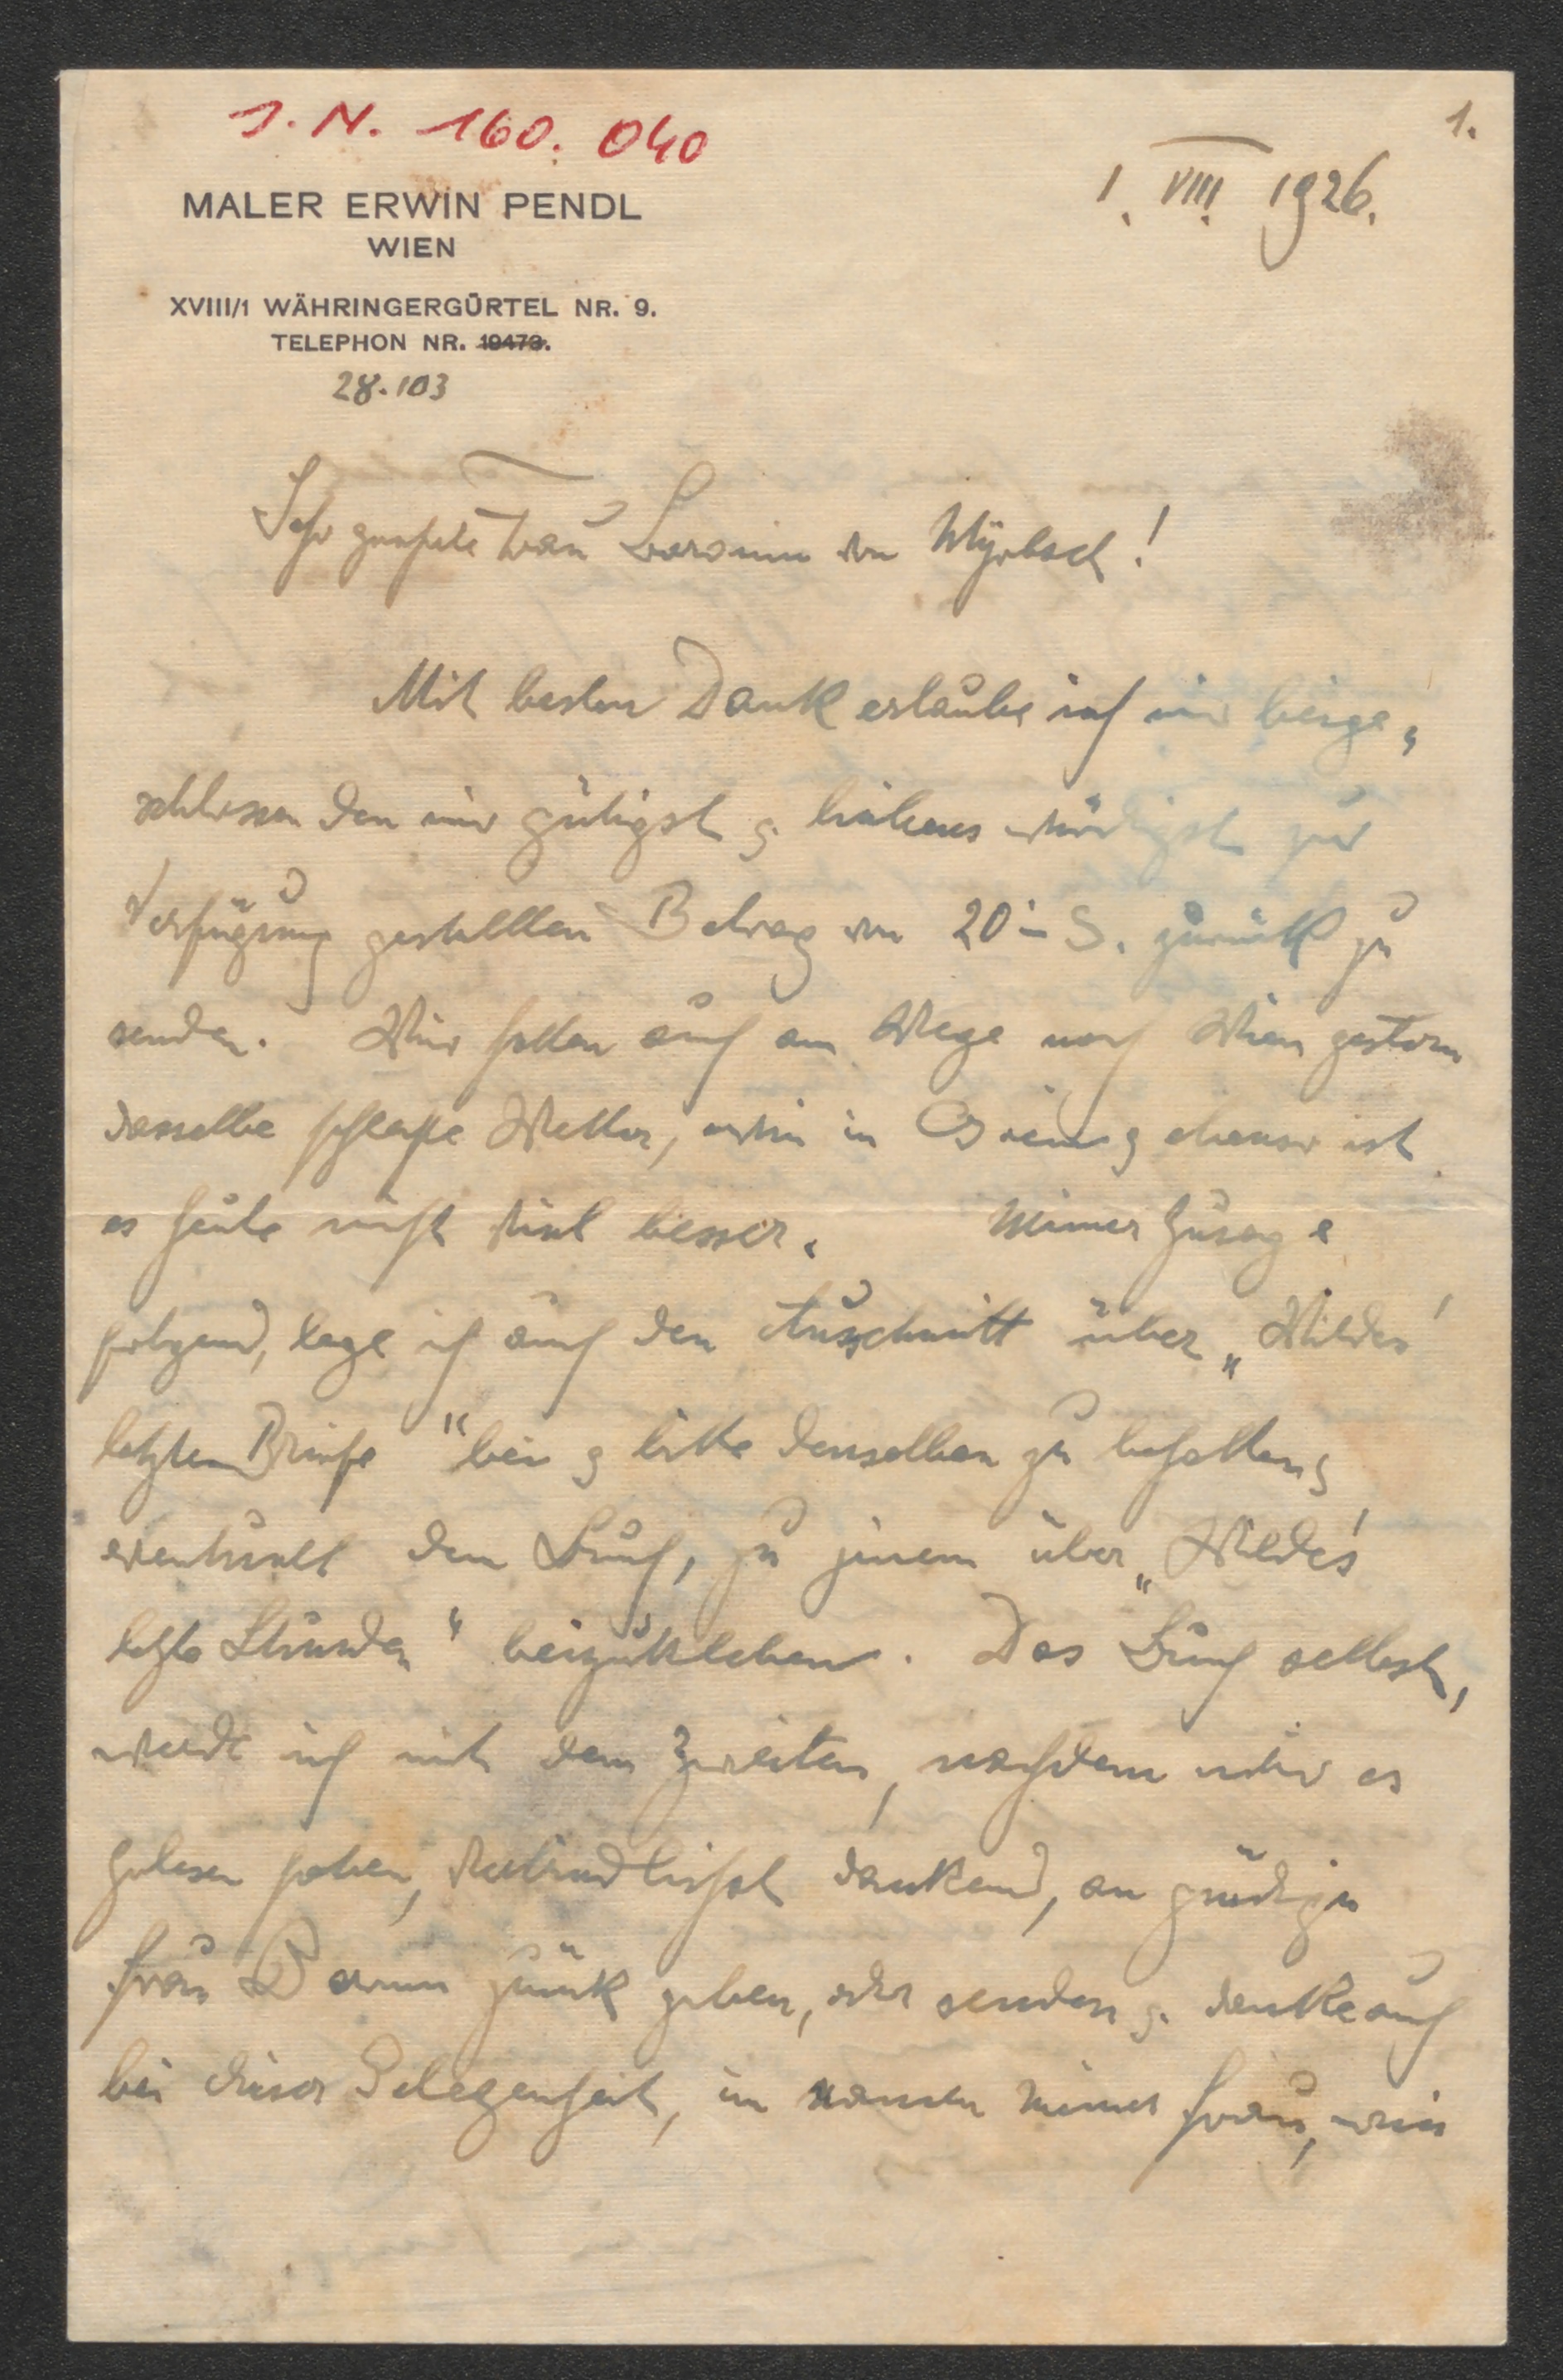 J. N. 160. 040
1.
MALER ERWIN PENDL
WIEN
XVIII/1 WÄHRINGERGÜRTEL NR. 9.
TELEPHON NR. 19473.
28.103
1. VIII. 1926.
Sehr geehrte Frau Baronin von Myrbach!
Mit besten Dank erlaube ich mir beige„
schlossen den mir gütigst & liebenswürdigst zur
Verfügung gestellten Betrag von 20·– S. zurück zu
senden. Wir hatten auch am Wege nach Wien gestern
dasselbe schlechte Wetter, wie in & ebenso ist
es heute nicht viel besser. Meiner Zusage
folgend, lege ich auch den Ausschnitt über „Wildes'
letzten Briefe" bei & bitte denselben zu behalten &
eventuell dem Buch, zu jenem über „Wilde's
letzte Stunden" beizukleben. Das Buch selbst,
werde ich mit dem Zweiten, nachdem wir es
gelesen haben, verbindlichst dankend, an gnädige
Frau Baronin zurück geben, oder senden & danke auch
bei dieser Gelegenheit, im Namen meiner Frau, wie